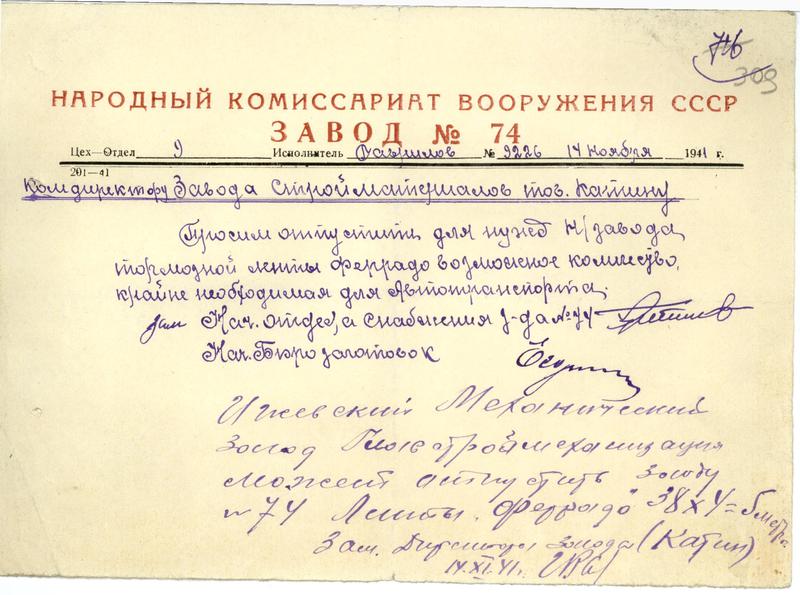 309
НАРОДНЫЙ КОМИССАРИАТ ВООРУЖЕНИЯ СССР
ЗАВОД № 74
Цех—Отдел 9 Исполнитель Гаврилов № 9226 14 ноября 1941 г.
201—41
Комдиректору Завода Стройматериалов тов. Катину
Просим отпустить для нужд н/завода
тормозной ленты феррадо возможное количество,
крайне необходимая для Автотранспорта.
зам Нач. отдела снабжения з-да №74
Нач. Бюро заготовок
Ижевский Механический
завод Главстроймеханизация
может отпустить заводу
№74 Ленты "феррадо" 38х4=5 метра
Зам. Директора завода (Катин)
14.XI.41г.